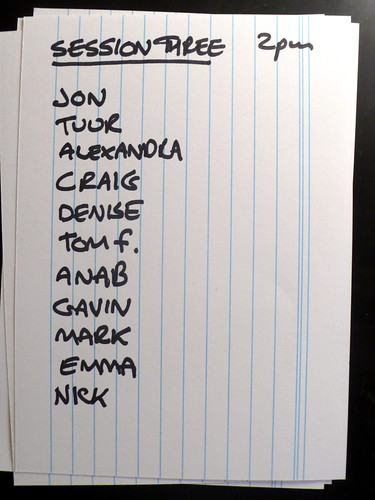 SESSION THREE 2pm
JON
TUUR
ALEXANDRA
CRAIG
DENISE
TOM F.
ANAB
GAVIN
MARK
EMMA
NICK